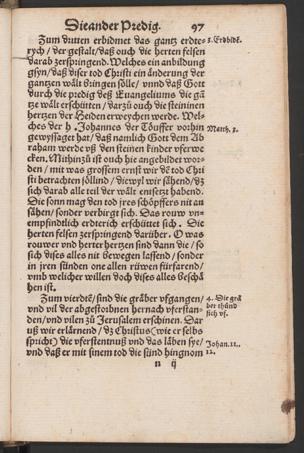 Die ander Predig. 97
Zum dritten erbidmet das gantz erdte- 3. Erdbidē.
rych / der gestalt / daß ouch die herten felsen
darab zerspringend. Welches ein anbildung
gsyn / daß diser tod Christi ein änderung der
gantzen wält bringen sölle / vnnd daß Gott
durch die predig deß Euangeliums die gā
tze wält erschütten / darzů ouch die steininen
hertzen der Heiden erweychen werde. Wel-
ches der h. Johannes der Töuffer vorhin Matth. 3.
gewyssaget hat / daß namlich Gott dem Ab
raham werde vß den steinen kinder vferwe
cken. Mithinzů ist ouch hie angebildet wor-
den / mit was grossem ernst wir dē tod Chri
sti betrachten söllind / diewyl wir sähend / dz
sich darab alle teil der wält entsetzt habend.
Die sonn mag den tod jres schöpffers nit an
sähen / sonder verbirgt sich. Das rouw vn-
empfindtlich erdterich erschüttet sich. Die
herten felsen zerspringend darüber. O was
rouwer vnd herter hertzen sind dann die / so
sich dises alles nit bewegen lassend / sonder
in jren sünden one allen rüwen fürfarend /
vmb welicher willen doch dises alles beschä
hen ist.
Zum vierdtē / sind die gräber vfgangen / 4. Die grä
vnd vil der abgestorbnen hernach vferstan- ber thůnd
den / vnd vilen zů Jerusalem erschinen. Dar sich vf.
uß wir erlärnend / dz Christus (wie er selbs
spricht) die vferstentnuß vnd das läben sye / Johan. 11.
vnd daß er mit sinem tod die sünd hingnom 12.
n ij